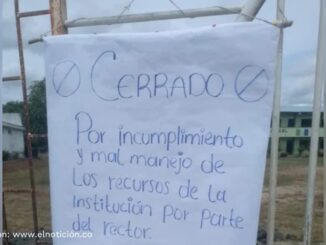 CERRADO
Por incumplimiento
y mal manejo de
Los recursos de la
Institución por parte
del rector.
www.elnotición.co